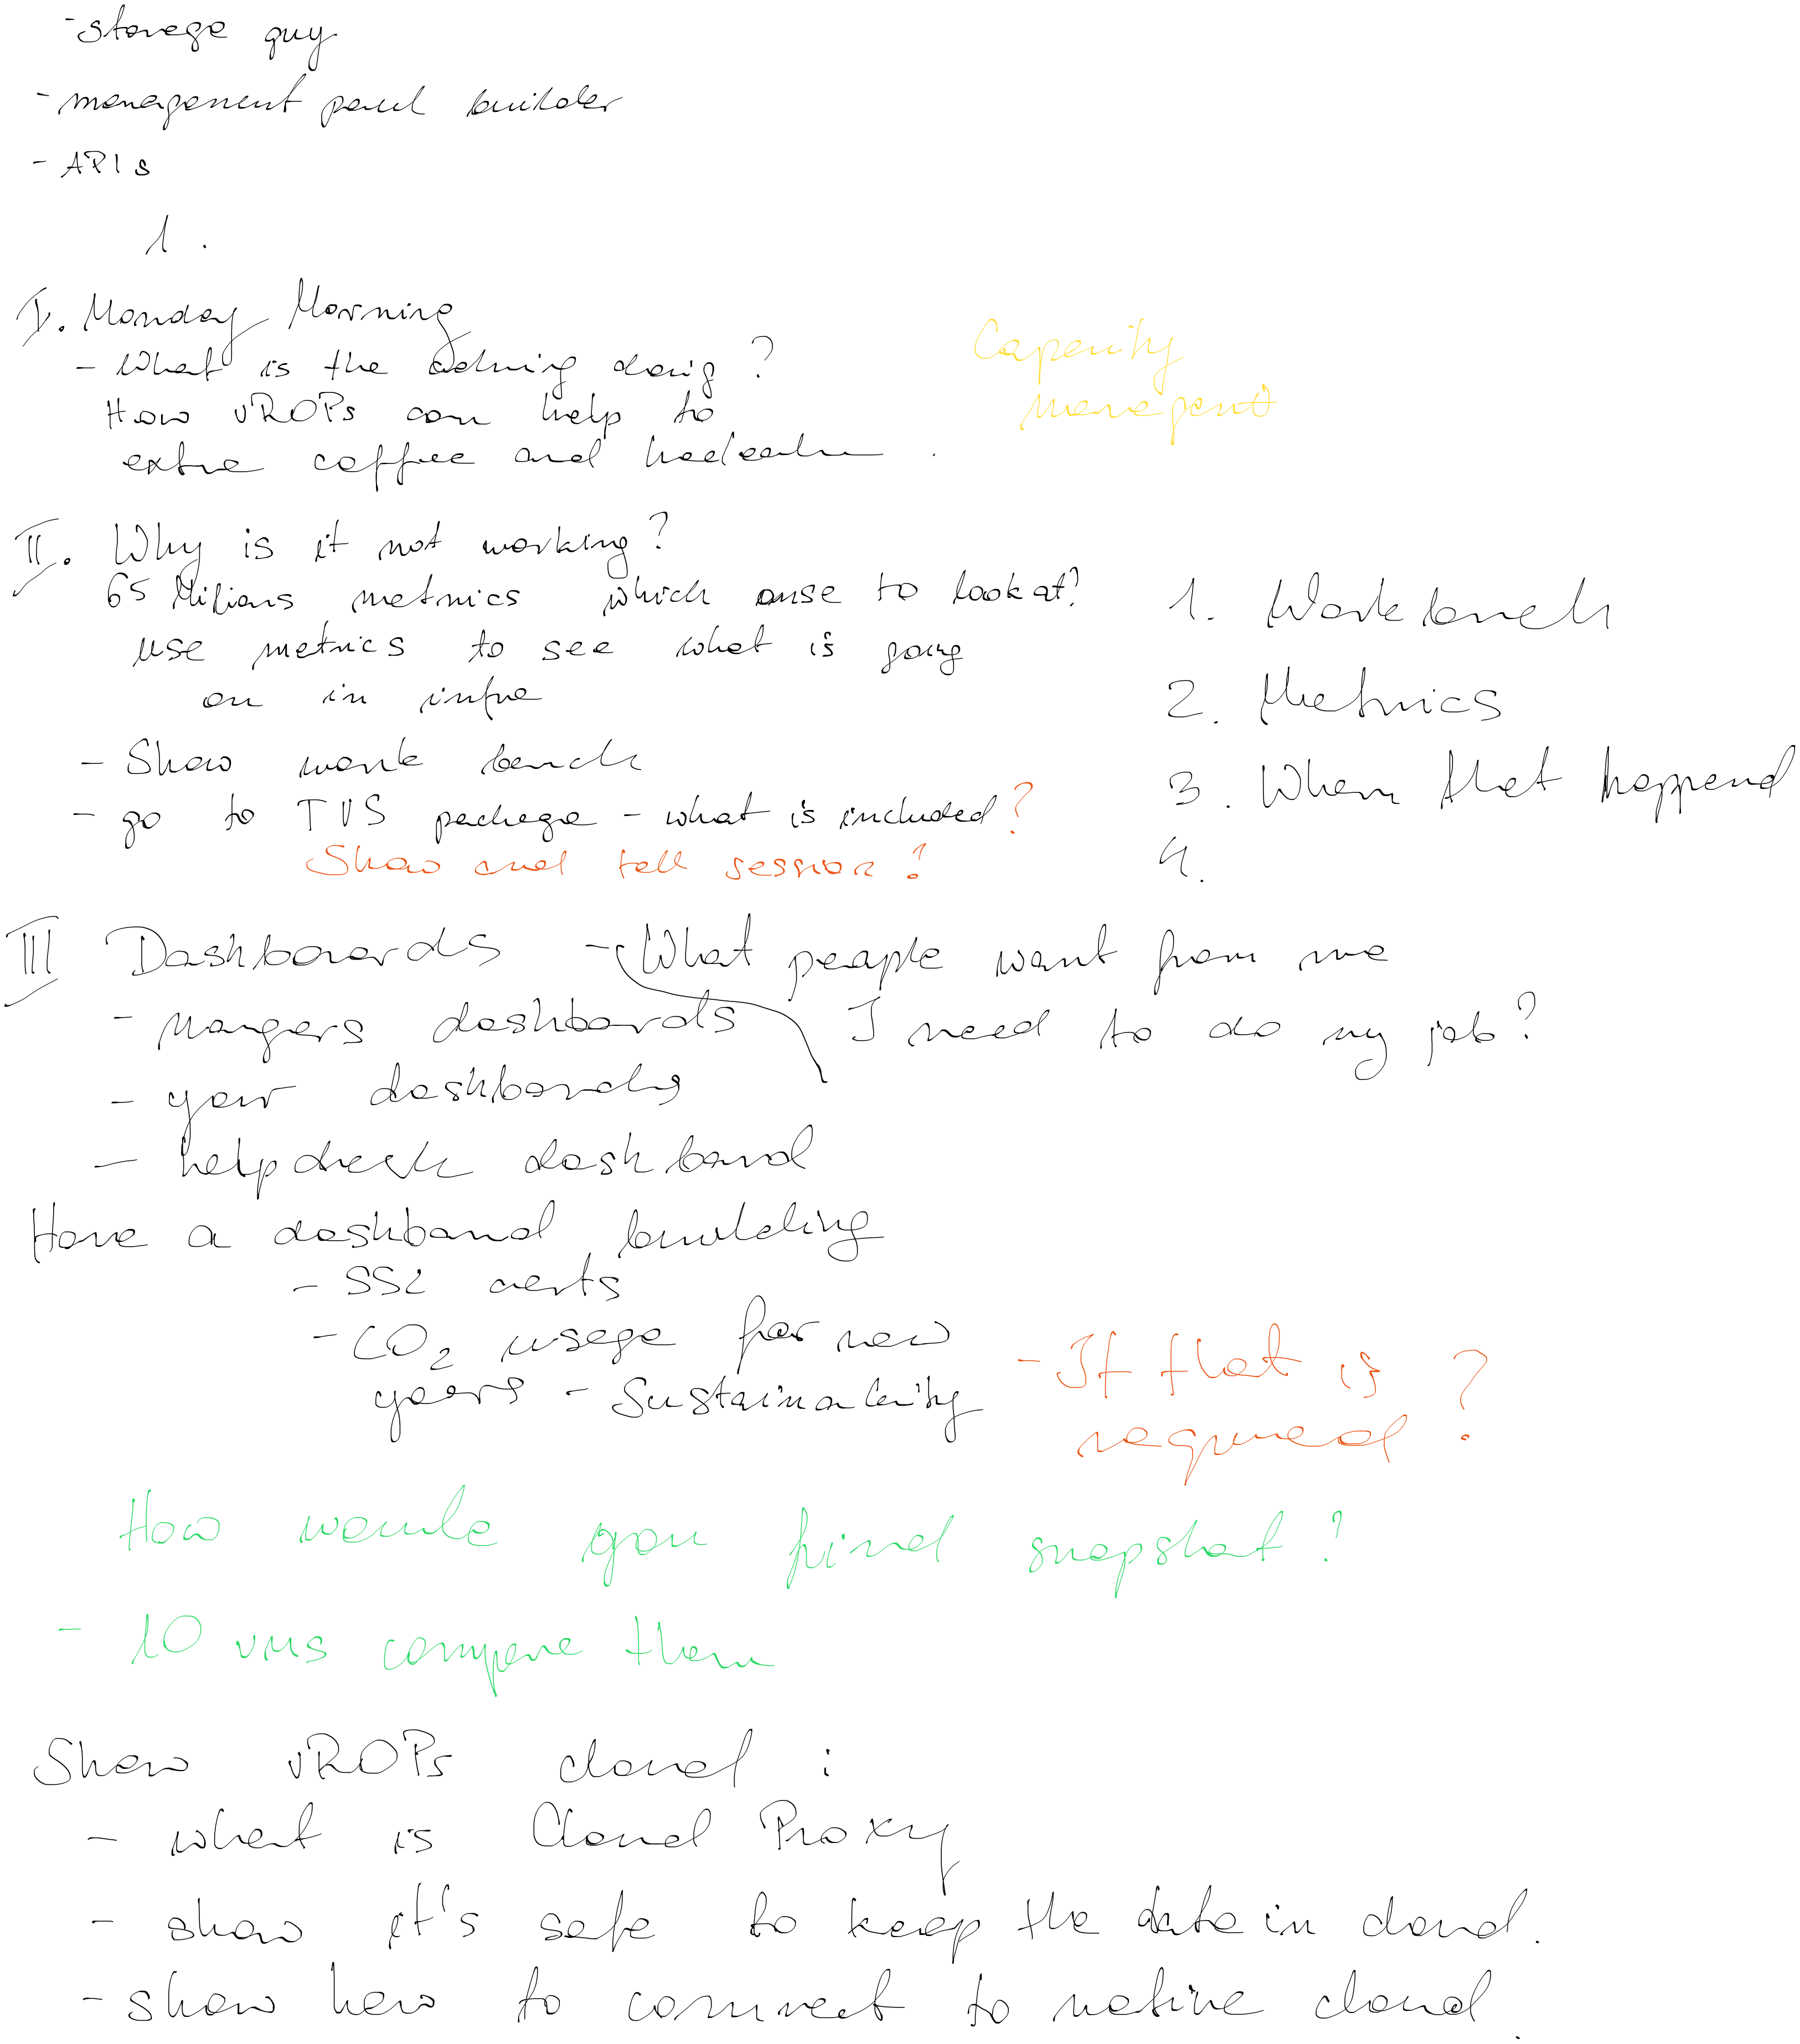 - storage guy
- management panel builder
- APIs
1.
I. Monday Morning
- What is the doing?
How vROPs can help to
extra coffee and
Capacity
managent
II. Why is it not working?
65 Milions metrics which to look at?
use metrics to see what is going
on in infra
- Show work bench
- go to TVS package - what is included?
Show and tell session?
1. Workbench
2. Metrics
3. When that happend
4.
III Dashboards - What people want from me
- Mangers dashbords I need to do my job?
- your dashboards
- helpdesk dashboard
Have a dashboard building
- SSL certs
- CO2 usage for new
years - Sustainability
- If that is
required?
How would you find snapshot?
- 10 vms compare them
Show vROPs cloud:
- what is Cloud Proxy
- show it's safe to keep the data in cloud.
- show how to connect to native cloud.